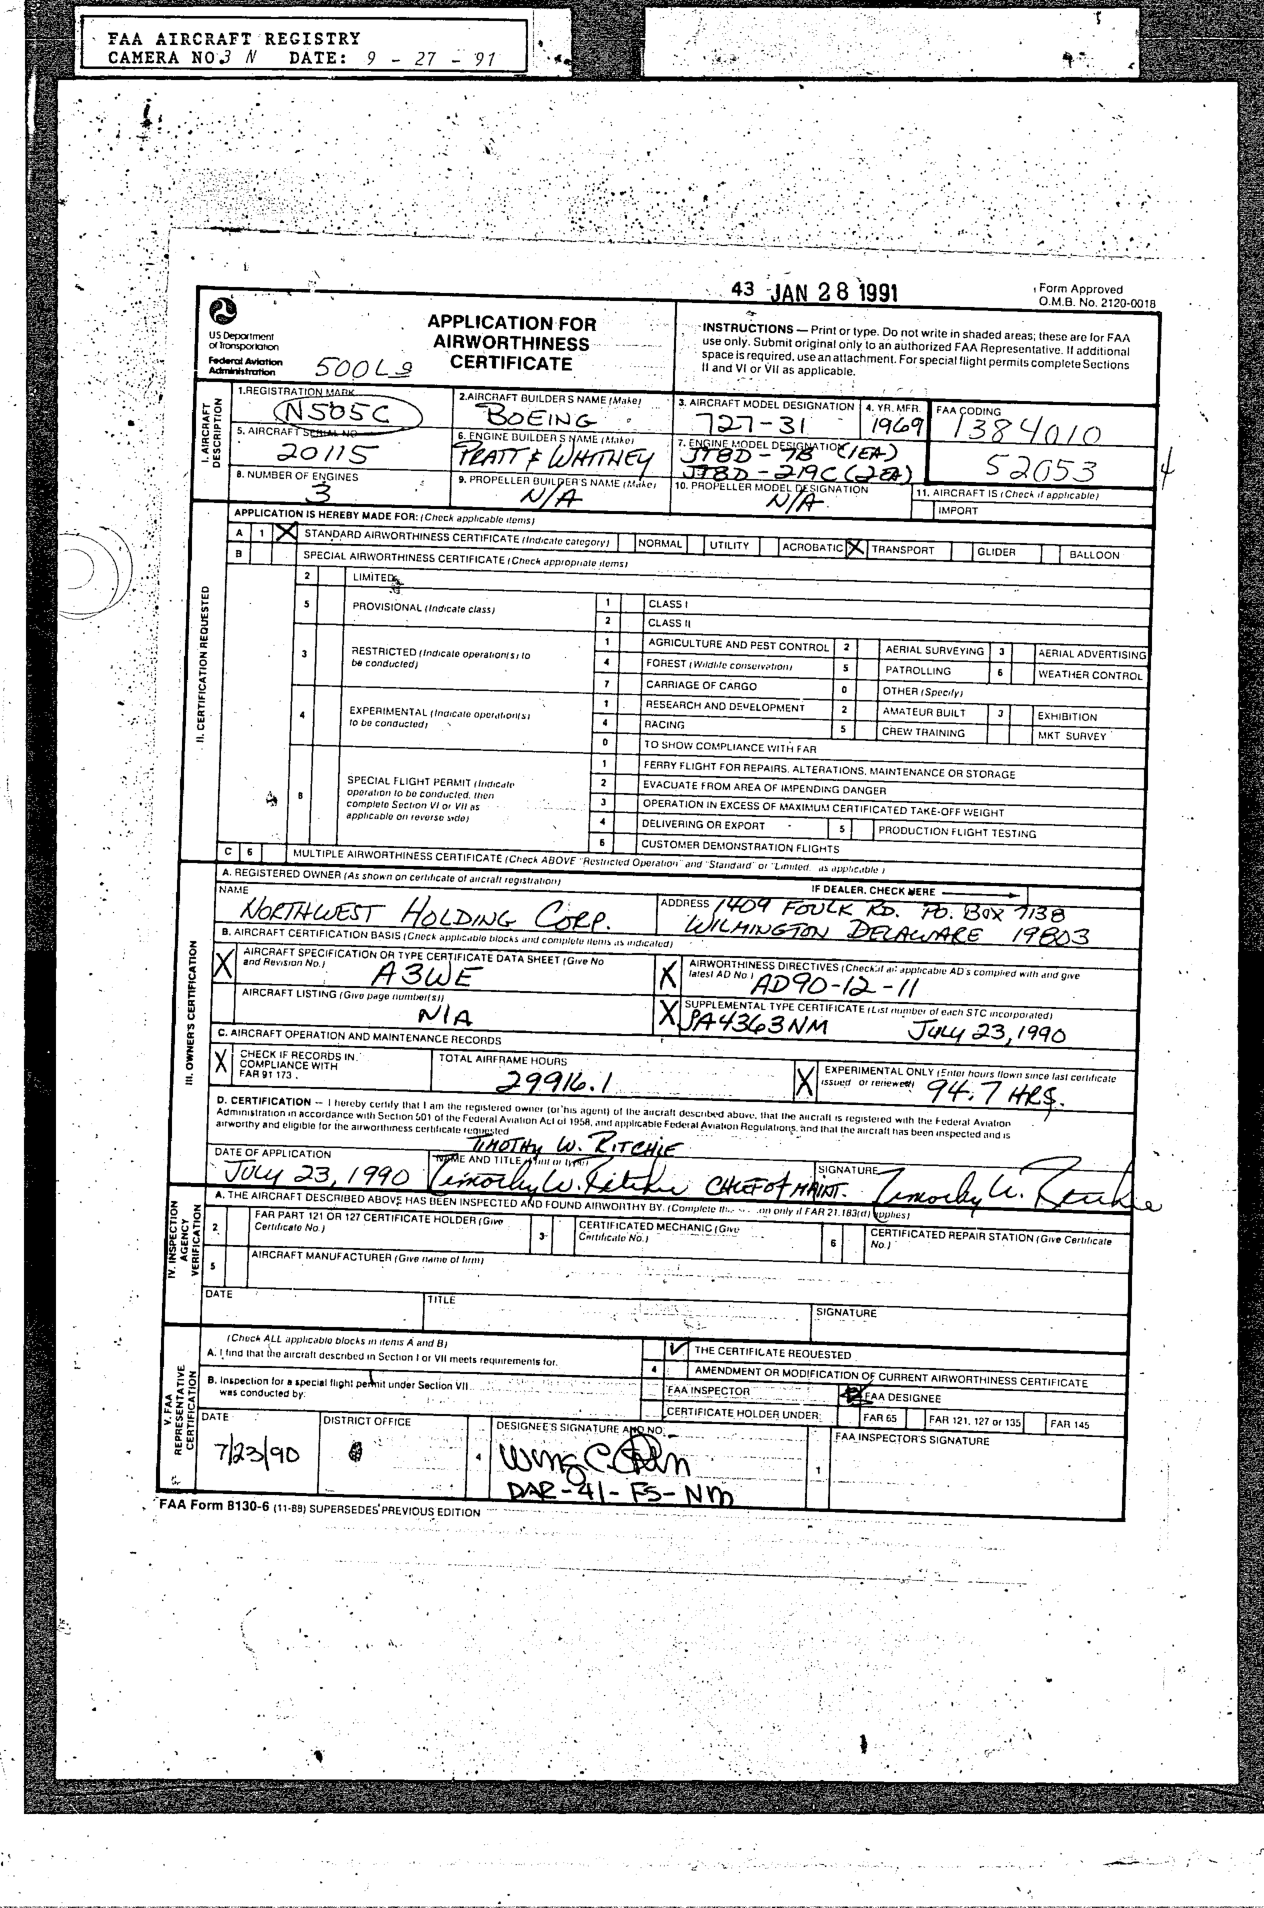 FAA AIRCRAFT REGISTRY
CAMERA NO.3 N DATE: 9 - 27 - 91
43 JAN 28 1991
Form Approved
O.M.B. No. 2120-0018
US Department
of Transportation
Federal Aviation
Administration
APPLICATION FOR
AIRWORTHINESS
CERTIFICATE
INSTRUCTIONS — Print or type. Do not write in shaded areas; these are for FAA
use only. Submit original only to an authorized FAA Representative. If additional
space is required, use an attachment. For special flight permits complete Sections
II and VI or VII as applicable.
I. AIRCRAFT DESCRIPTION
1.REGISTRATION MARK
N505C
2.AIRCRAFT BUILDER'S NAME (Make)
BOEING
3. AIRCRAFT MODEL DESIGNATION
727-31
4. YR. MFR.
1969
FAA CODING
1384010
52053
5. AIRCRAFT SERIAL NO
20115
6. ENGINE BUILDER'S NAME (Make)
PRATT & WHITNEY
7. ENGINE MODEL DESIGNATION
JT8D - 7B (1EA)
JT8D - 219C (2EA)
8. NUMBER OF ENGINES
3
9. PROPELLER BUILDER'S NAME (Make)
N/A
10. PROPELLER MODEL DESIGNATION
N/A
11. AIRCRAFT IS (Check if applicable)
IMPORT
II. CERTIFICATION REQUESTED
APPLICATION IS HEREBY MADE FOR: (Check applicable items)
A 1 X STANDARD AIRWORTHINESS CERTIFICATE (Indicate category) NORMAL UTILITY ACROBATIC X TRANSPORT GLIDER BALLOON
B SPECIAL AIRWORTHINESS CERTIFICATE (Check appropriate items)
2 LIMITED
5 PROVISIONAL (Indicate class)
1 CLASS I
2 CLASS II
3 RESTRICTED (Indicate operation(s) to
be conducted)
1 AGRICULTURE AND PEST CONTROL 2 AERIAL SURVEYING 3 AERIAL ADVERTISING
4 FOREST (Wildlife conservation) 5 PATROLLING 6 WEATHER CONTROL
7 CARRIAGE OF CARGO 0 OTHER (Specify)
4 EXPERIMENTAL (Indicate operation(s)
to be conducted)
1 RESEARCH AND DEVELOPMENT 2 AMATEUR BUILT 3 EXHIBITION
4 RACING 5 CREW TRAINING MKT SURVEY
0 TO SHOW COMPLIANCE WITH FAR
8 SPECIAL FLIGHT PERMIT (Indicate
operation to be conducted, then
complete Section VI or VII as
applicable on reverse side)
1 FERRY FLIGHT FOR REPAIRS, ALTERATIONS, MAINTENANCE OR STORAGE
2 EVACUATE FROM AREA OF IMPENDING DANGER
3 OPERATION IN EXCESS OF MAXIMUM CERTIFICATED TAKE-OFF WEIGHT
4 DELIVERING OR EXPORT 5 PRODUCTION FLIGHT TESTING
6 CUSTOMER DEMONSTRATION FLIGHTS
C 6 MULTIPLE AIRWORTHINESS CERTIFICATE (Check ABOVE "Restricted Operation" and "Standard" or "Limited, as applicable)
III. OWNER'S CERTIFICATION
A. REGISTERED OWNER (As shown on certificate of aircraft registration)
IF DEALER, CHECK HERE
NAME
NORTHWEST HOLDING CORP.
ADDRESS 1409 FOULK RD. PO. BOX 7138
WILMINGTON DELAWARE 19803
B. AIRCRAFT CERTIFICATION BASIS (Check applicable blocks and complete items as indicated)
X AIRCRAFT SPECIFICATION OR TYPE CERTIFICATE DATA SHEET (Give No
and Revision No.)
A3WE
X AIRWORTHINESS DIRECTIVES (Check if all applicable AD's complied with and give
latest AD No.)
AD90-12-11
AIRCRAFT LISTING (Give page number(s))
N/A
X SUPPLEMENTAL TYPE CERTIFICATE (List number of each STC incorporated)
SA4363NM JULY 23, 1990
C. AIRCRAFT OPERATION AND MAINTENANCE RECORDS
X CHECK IF RECORDS IN
COMPLIANCE WITH
FAR 91 173.
TOTAL AIRFRAME HOURS
29916.1
X EXPERIMENTAL ONLY (Enter hours flown since last certificate
issued or renewed)
94.7 HRS.
D. CERTIFICATION — I hereby certify that I am the registered owner (or his agent) of the aircraft described above, that the aircraft is registered with the Federal Aviation
Administration in accordance with Section 501 of the Federal Aviation Act of 1958, and applicable Federal Aviation Regulations, and that the aircraft has been inspected and is
airworthy and eligible for the airworthiness certificate requested
TIMOTHY W. RITCHIE
DATE OF APPLICATION
JULY 23, 1990
NAME AND TITLE (Print or type)
Timothy W. Ritchie CHIEF OF MAINT.
SIGNATURE
Timothy W. Ritchie
IV. INSPECTION AGENCY VERIFICATION
A. THE AIRCRAFT DESCRIBED ABOVE HAS BEEN INSPECTED AND FOUND AIRWORTHY BY: (Complete this on only if FAR 21.183(d) applies)
2 FAR PART 121 OR 127 CERTIFICATE HOLDER (Give
Certificate No.)
3 CERTIFICATED MECHANIC (Give
Certificate No.)
6 CERTIFICATED REPAIR STATION (Give Certificate
No.)
5 AIRCRAFT MANUFACTURER (Give name of firm)
DATE
TITLE
SIGNATURE
V. FAA REPRESENTATIVE CERTIFICATION
(Check ALL applicable blocks in items A and B)
A. I find that the aircraft described in Section I or VII meets requirements for.
THE CERTIFICATE REQUESTED
4 AMENDMENT OR MODIFICATION OF CURRENT AIRWORTHINESS CERTIFICATE
B. Inspection for a special flight permit under Section VII
was conducted by:
FAA INSPECTOR
FAA DESIGNEE
CERTIFICATE HOLDER UNDER: FAR 65 FAR 121, 127 or 135 FAR 145
DATE
7/23/90
DISTRICT OFFICE
DESIGNEE'S SIGNATURE AND NO.
4
DAR-41-FS-NM
FAA INSPECTOR'S SIGNATURE
1
FAA Form 8130-6 (11-88) SUPERSEDES PREVIOUS EDITION